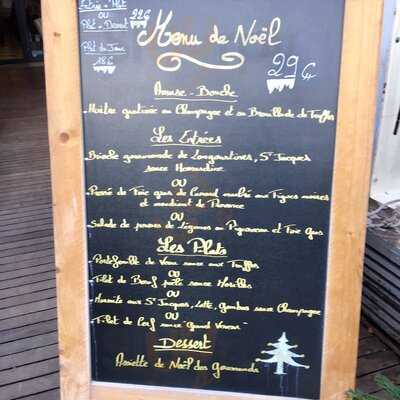 Entrée - Plat
OU
Plat - Dessert 22€
Plat du Jour
16€
Menu de Noël
29€
Amuse - Bouche
- Huître gratinée au Champagne et sa Brouillade de Truffes
Les Entrées
- Brioche gourmande de Langoustines, St Jacques
sauce Homardine
OU
- Pressé de Foie gras de Canard marbré aux Figues noires
et mendiant de Provence
OU
- Salade de jeunes de légumes au Pigeonneau et Foie Gras
Les Plats
- Portefeuille de Veau sauce aux Truffes
OU
- Filet de Boeuf poêlé sauce Morilles
OU
- Marmite aux St Jacques, Lotte, Gambas sauce Champagne
OU
- Filet de Cerf sauce Grand Veneur
Dessert
Assiette de Noël des Gourmands